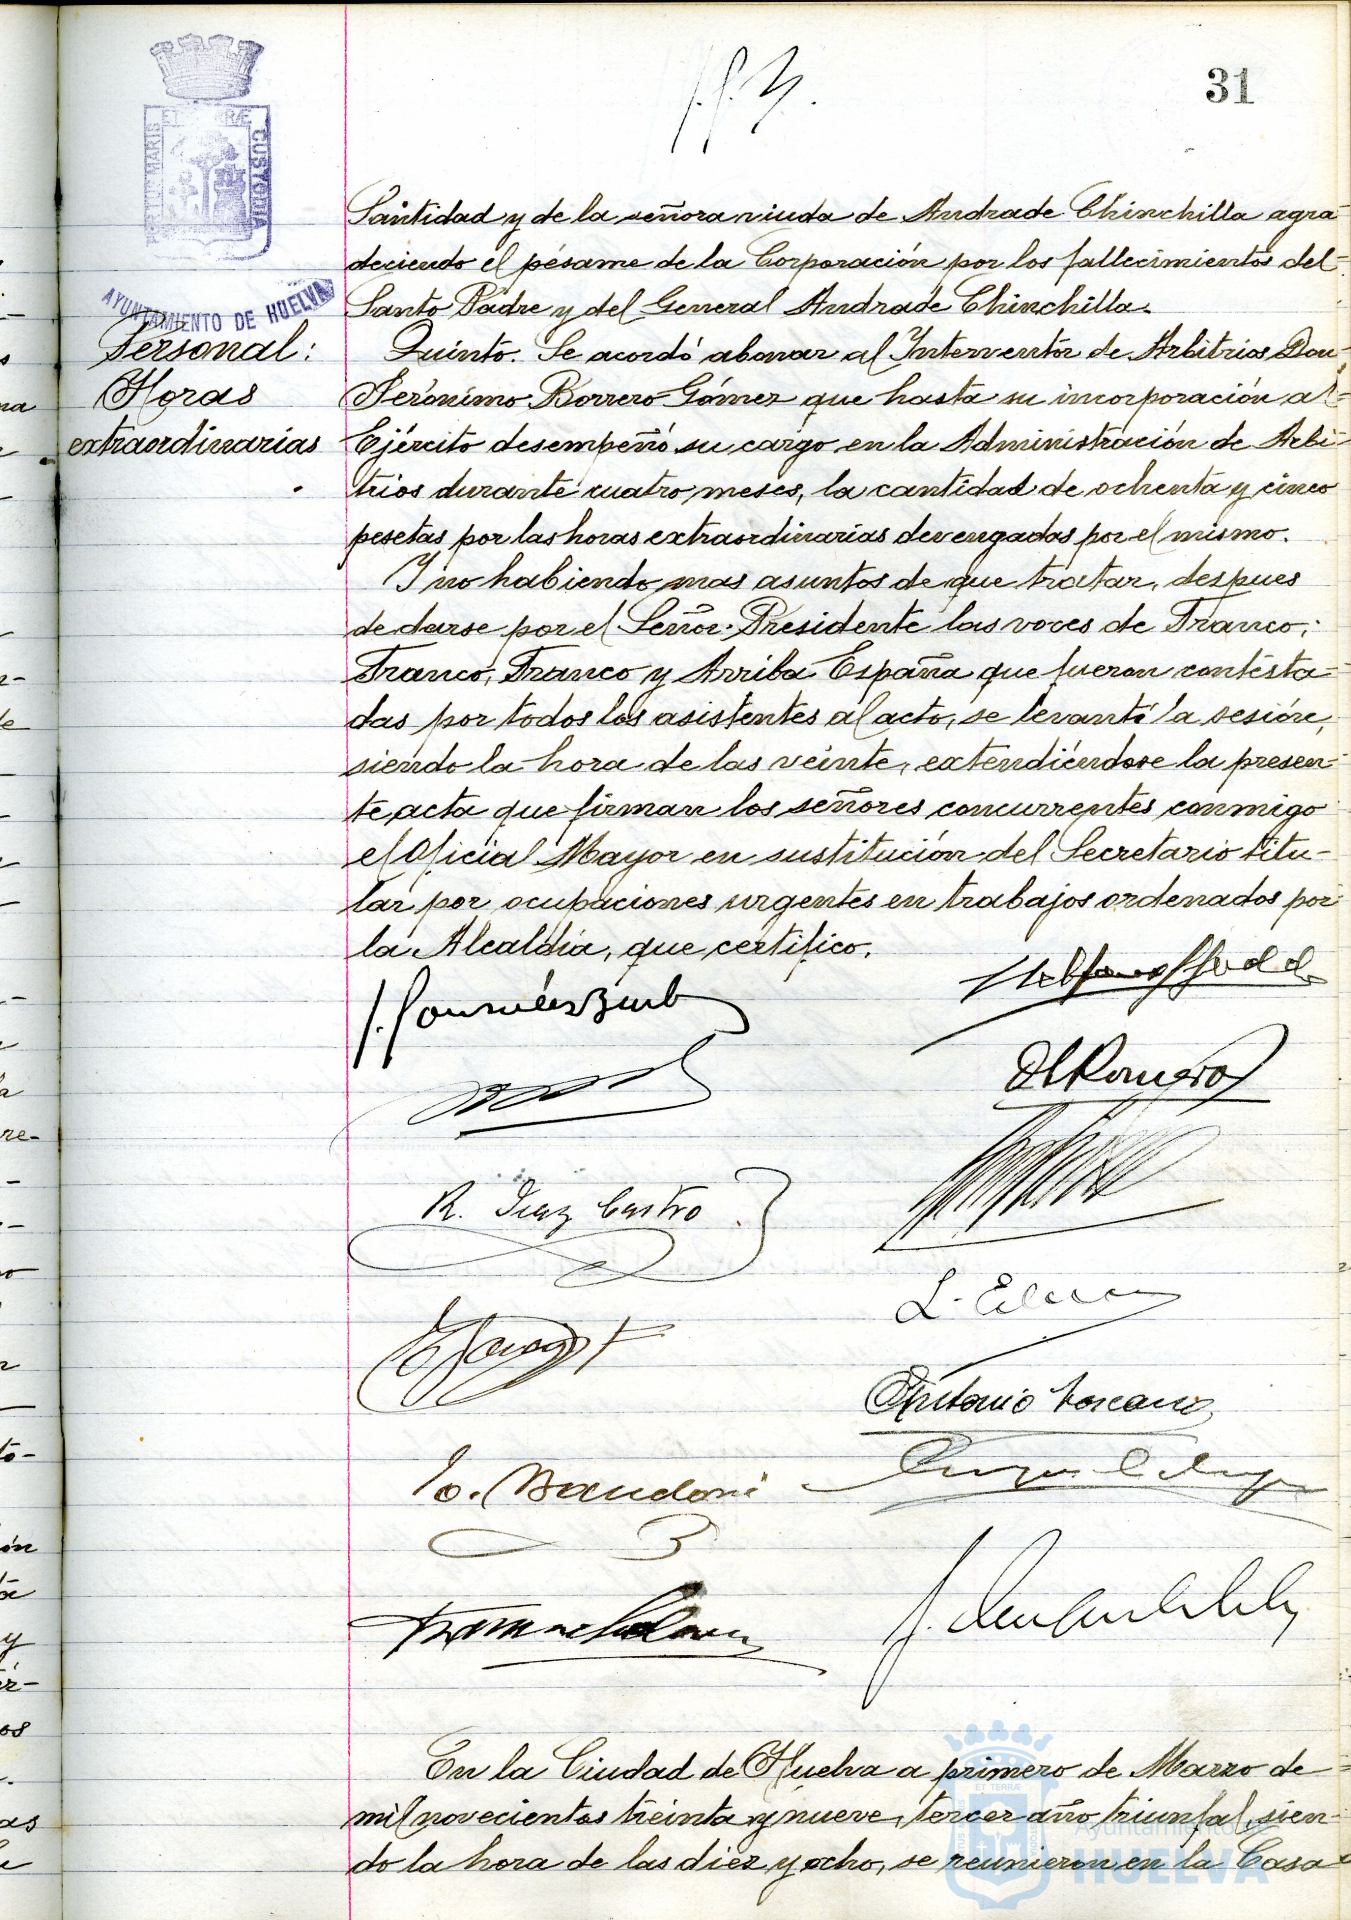 31
PORTUS MARIS ET TERRÆ CUSTODIA
AYUNTAMIENTO DE HUELVA
Santidad y de la señora viuda de Andrade Chinchilla agra-
deciendo el pésame de la Corporación por los fallecimientos del
Santo Padre y del General Andrade Chinchilla.
Personal:
Horas
extraordinarias
Quinto. Se acordó abonar al Interventor de Arbitrios Don
Jerónimo Borrero Gómez que hasta su incorporación al
Ejército desempeñó su cargo en la Administración de Arbi-
trios durante cuatro meses, la cantidad de ochenta y cinco
pesetas por las horas extraordinarias devengadas por el mismo.
Y no habiendo mas asuntos de que tratar, despues
de darse por el Señor Presidente las voces de Franco,
Franco, Franco y Arriba España que fueron contesta-
das por todos los asistentes al acto, se levantó la sesión,
siendo la hora de las veinte, extendiéndose la presen-
te acta que firman los señores concurrentes conmigo
el Oficial Mayor en sustitución del Secretario titu-
lar por ocupaciones urgentes en trabajos ordenados por
la Alcaldía, que certifico.
R. Diaz Castro
Romero
Antonio Toscano
En la Ciudad de Huelva a primero de Marzo de
mil novecientos treinta y nueve, tercer año triunfal, sien-
do la hora de las diez y ocho, se reunieron en la Casa
Ayuntamiento de
HUELVA